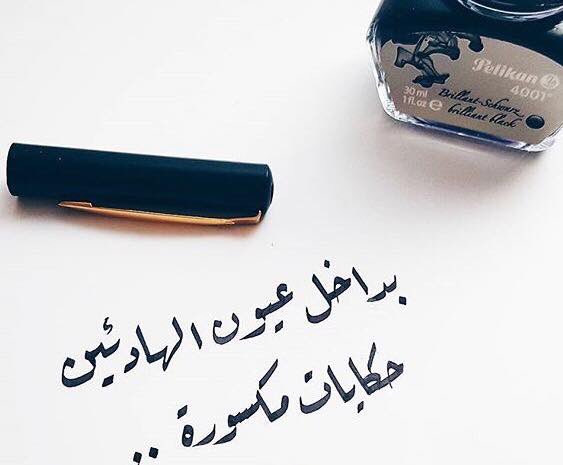 Pelikan
4001®
30 ml
1 fl.oz ℮
Brillant-Schwarz
brilliant black
بداخل عيون الهادئين
حكايات مكسورة ..